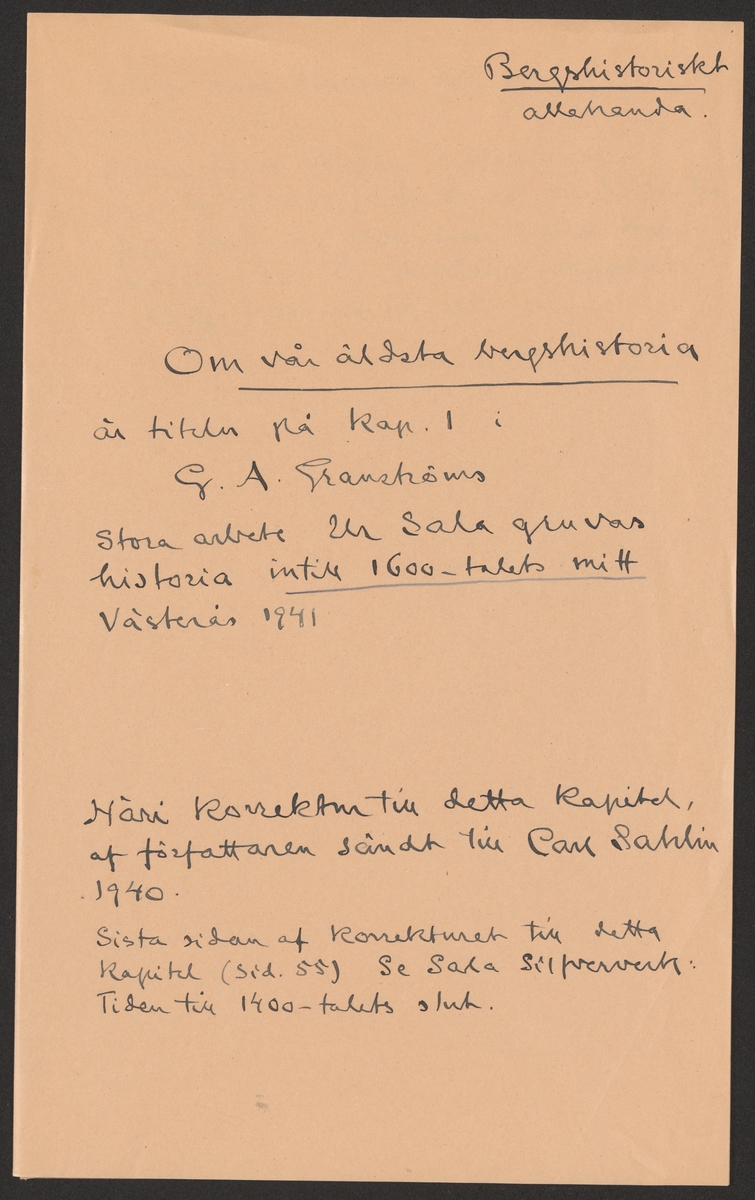 Bergshistoriskt
allehanda.
Om vår äldsta bergshistoria
är titeln på Kap. 1 i
G. A. Granströms
Stora arbete Ur Sala gruvas
historia intill 1600-talets mitt
Västerås 1941
Häri korrektur till detta kapitel,
af författaren sändt till Carl Sahlin
1940.
Sista sidan af korrekturet till detta
kapitel (sid. 55) Se Sala Silfververk:
Tiden till 1400-talets slut.